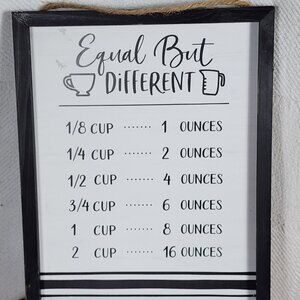 Equal But
DiffERENT
1/8 CUP ....... 1 OUNCES
1/4 CUP ....... 2 OUNCES
1/2 CUP ....... 4 OUNCES
3/4 CUP ....... 6 OUNCES
1 CUP ....... 8 OUNCES
2 CUP ....... 16 OUNCES